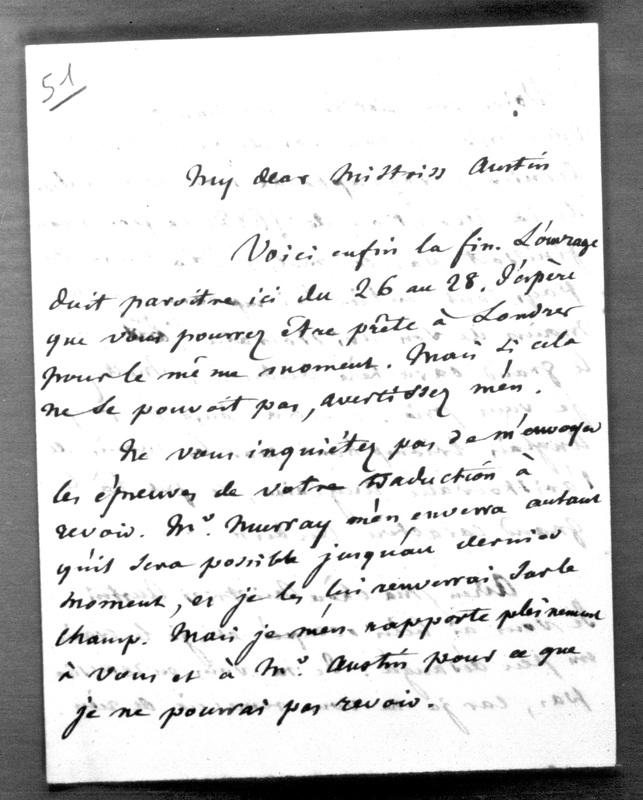 51
My dear Mistriss Austin
Voici enfin la fin. L'ouvrage
doit paroitre ici du 26 au 28. J'espère
que vous pourrez être prête à Londres
pour le même moment. Mais si cela
ne se pouvoit pas, avertissez m'en.
Ne vous inquiétez pas de m'envoyer
les épreuves de votre traduction à
revoir. Mr. Murray m'en enverra autant
qu'il sera possible jusqu'au dernier
moment, et je les lui renverrai sur le
champ. Mais je m'en rapporte pleinement
à vous et à Mr. Austin pour ce que
je ne pourrai pas revoir.